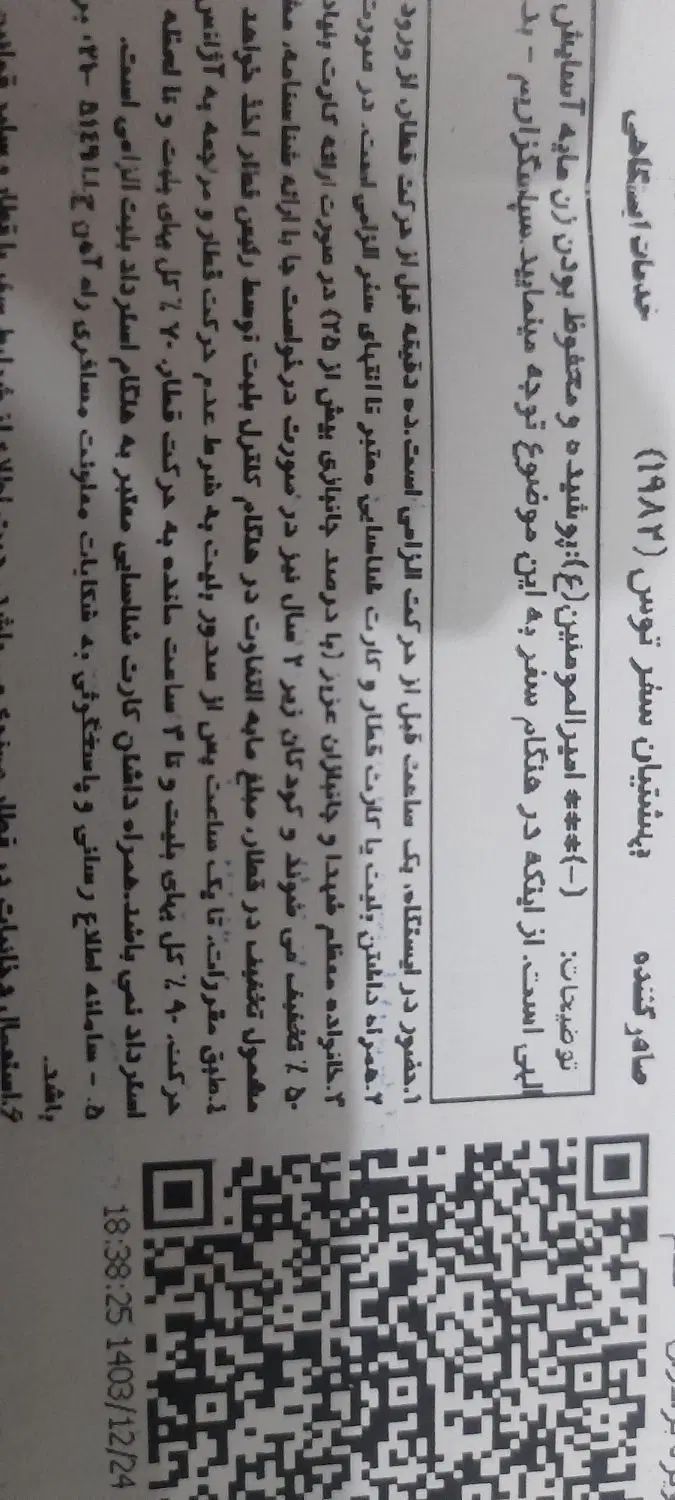 صادر کننده پشتیبان سفر توس (۱۹۸۲) خدمات ایستگاهی
توضیحات: (-)### امیرالمومنین(ع):پوشیده و محفوظ بودن زن مایه آسایش
است. از اینکه در هنگام سفر به این موضوع توجه مینمایید سپاسگزاریم -
۱.حضور در ایستگاه، یک ساعت قبل از حرکت الزامی است.ده دقیقه قبل از حرکت قطار، از ورود
۲.همراه داشتن بلیت یا کارت قطار و کارت شناسایی معتبر تا انتهای سفر الزامی است. در صورت
۳.خانواده معظم شهدا و جانبازان عزیز (با درصد جانبازی بیش از ۲۵) در صورت ارائه کارت بنیاد
۵۰ ٪ تخفیف می شوند و کودکان زیر ۲ سال نیز در صورت درخواست جا با ارائه شناسنامه،
مشمول تخفیف در قطار، مبلغ مابه التفاوت در هنگام کنترل بلیت توسط رئیس قطار اخذ خواهد
٤.طبق مقررات، تا یک ساعت پس از صدور بلیت به شرط عدم حرکت قطار و مراجعه به آژانس
حرکت، ۹۰ ٪ کل بهای بلیت و تا ۳ ساعت مانده به حرکت قطار، ۷۰ ٪ کل بهای بلیت و تا لحظه
استرداد نمی باشد.همراه داشتن کارت شناسایی معتبر به هنگام استرداد بلیت الزامی است.
۵. - سامانه اطلاع رسانی و پاسخگوئی به شکایات معاونت مسافری راه آهن ج.ا.ا
باشد.
18:38:25 1403/12/24